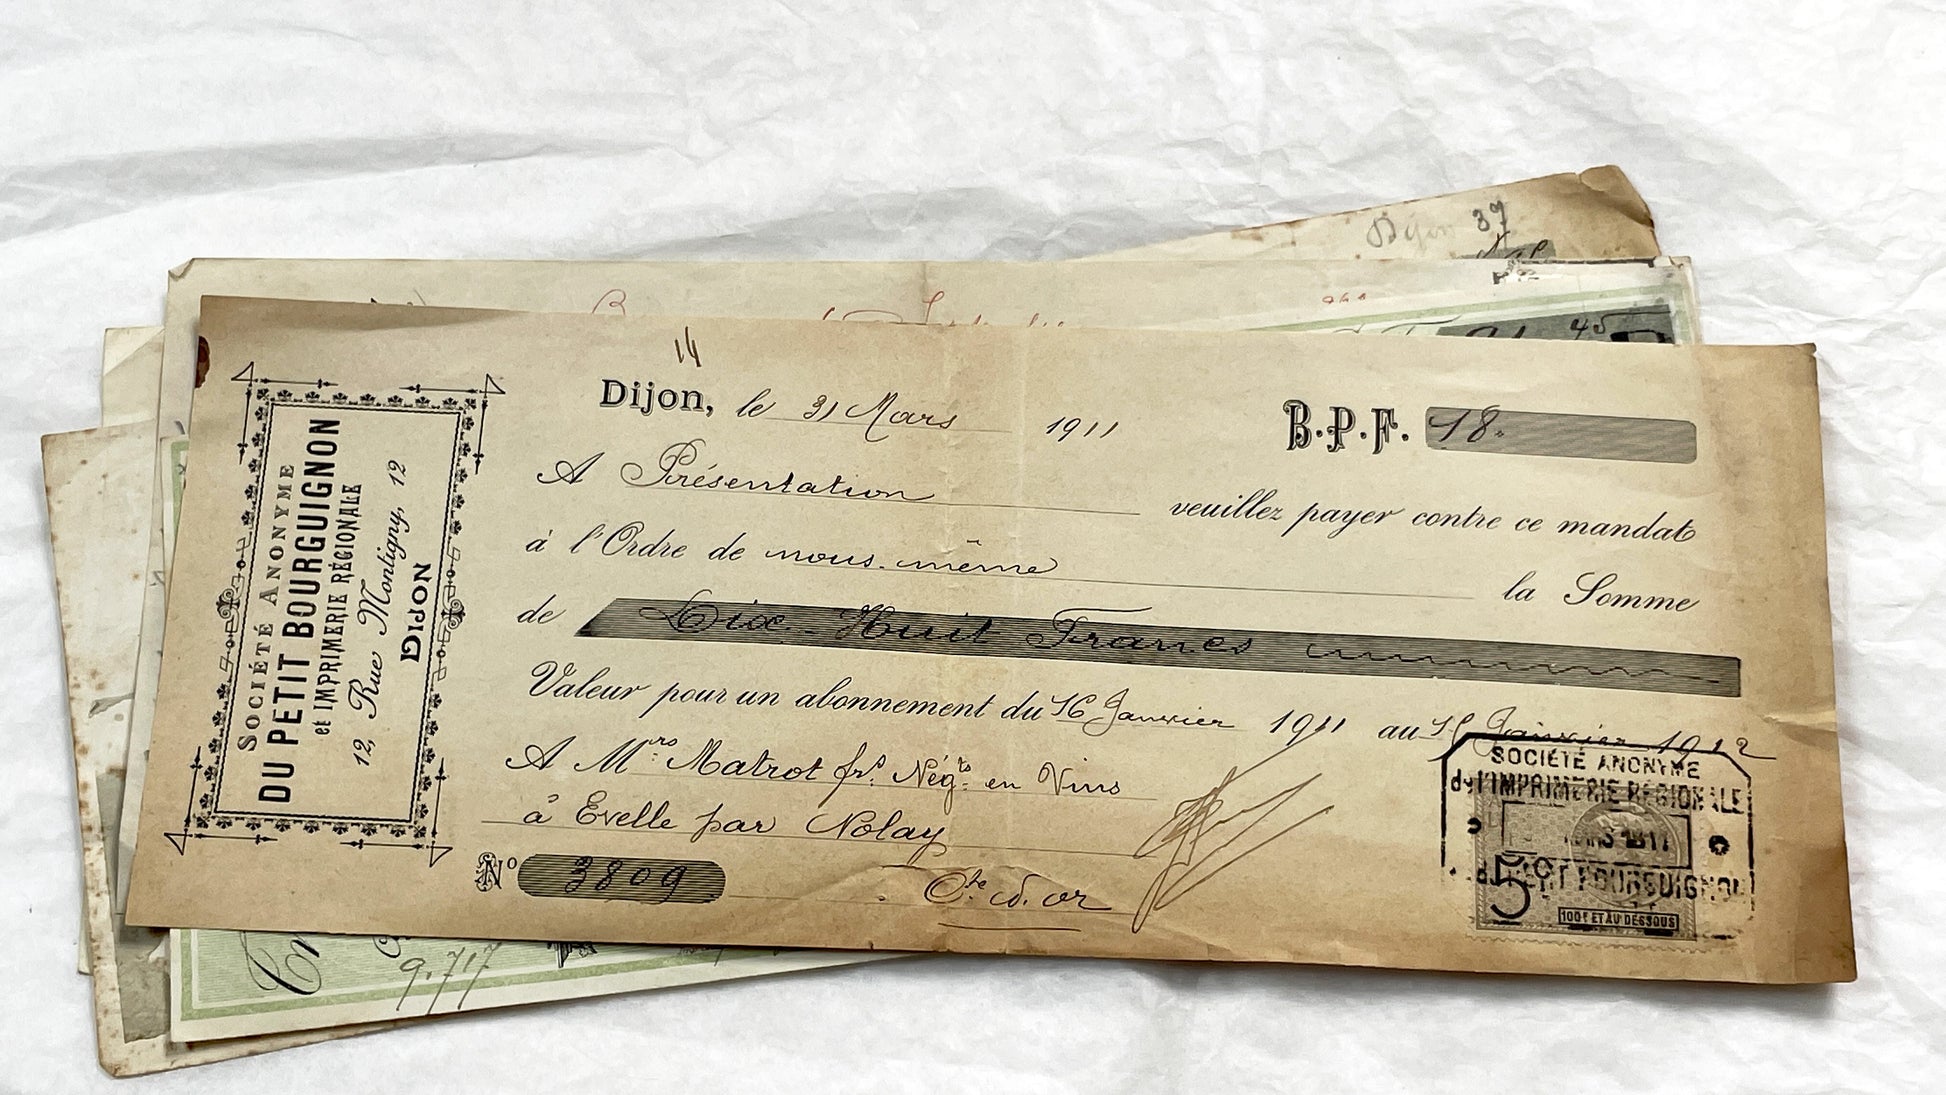 Dijon 39
45
14
Dijon, le 31 Mars 1911
B.P.F. 18.
A Présentation veuillez payer contre ce mandat
à l'Ordre de nous-même la Somme
de Dix-Huit Francs
Valeur pour un abonnement du 16 Janvier 1911 au 15 Janvier 1912
A Mrs Matrot frs Négts en Vins
à Evelle par Nolay
No 3809 Cte d'or
SOCIÉTÉ ANONYME
DU PETIT BOURGUIGNON
et IMPRIMERIE RÉGIONALE
12, Rue Montigny, 12
DIJON
SOCIÉTÉ ANONYME
de l'IMPRIMERIE RÉGIONALE
MARS 1911
du PETIT BOURGUIGNON
5c
100F ET AU DESSOUS
9.717